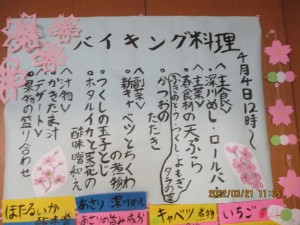 バイキング料理
4月4日12時〜
<主食>
深川めし・ロールパン
<主菜>
春食材の天ぷら
ふきのとう・つくし・よもぎ
タラの芽
かつおのたたき
<副菜>
新キャベツとちくわの煮物
つくしの玉子とじ
ホタルイカと菜花の
酢味噌和え
<汁物>
かきたま汁
<デザート>
果物の盛り合わせ
ほたるいか
あさり 深川めし
あさりの旨み成分
キャベツ 煮物
いちご
2022/03/21 11:35